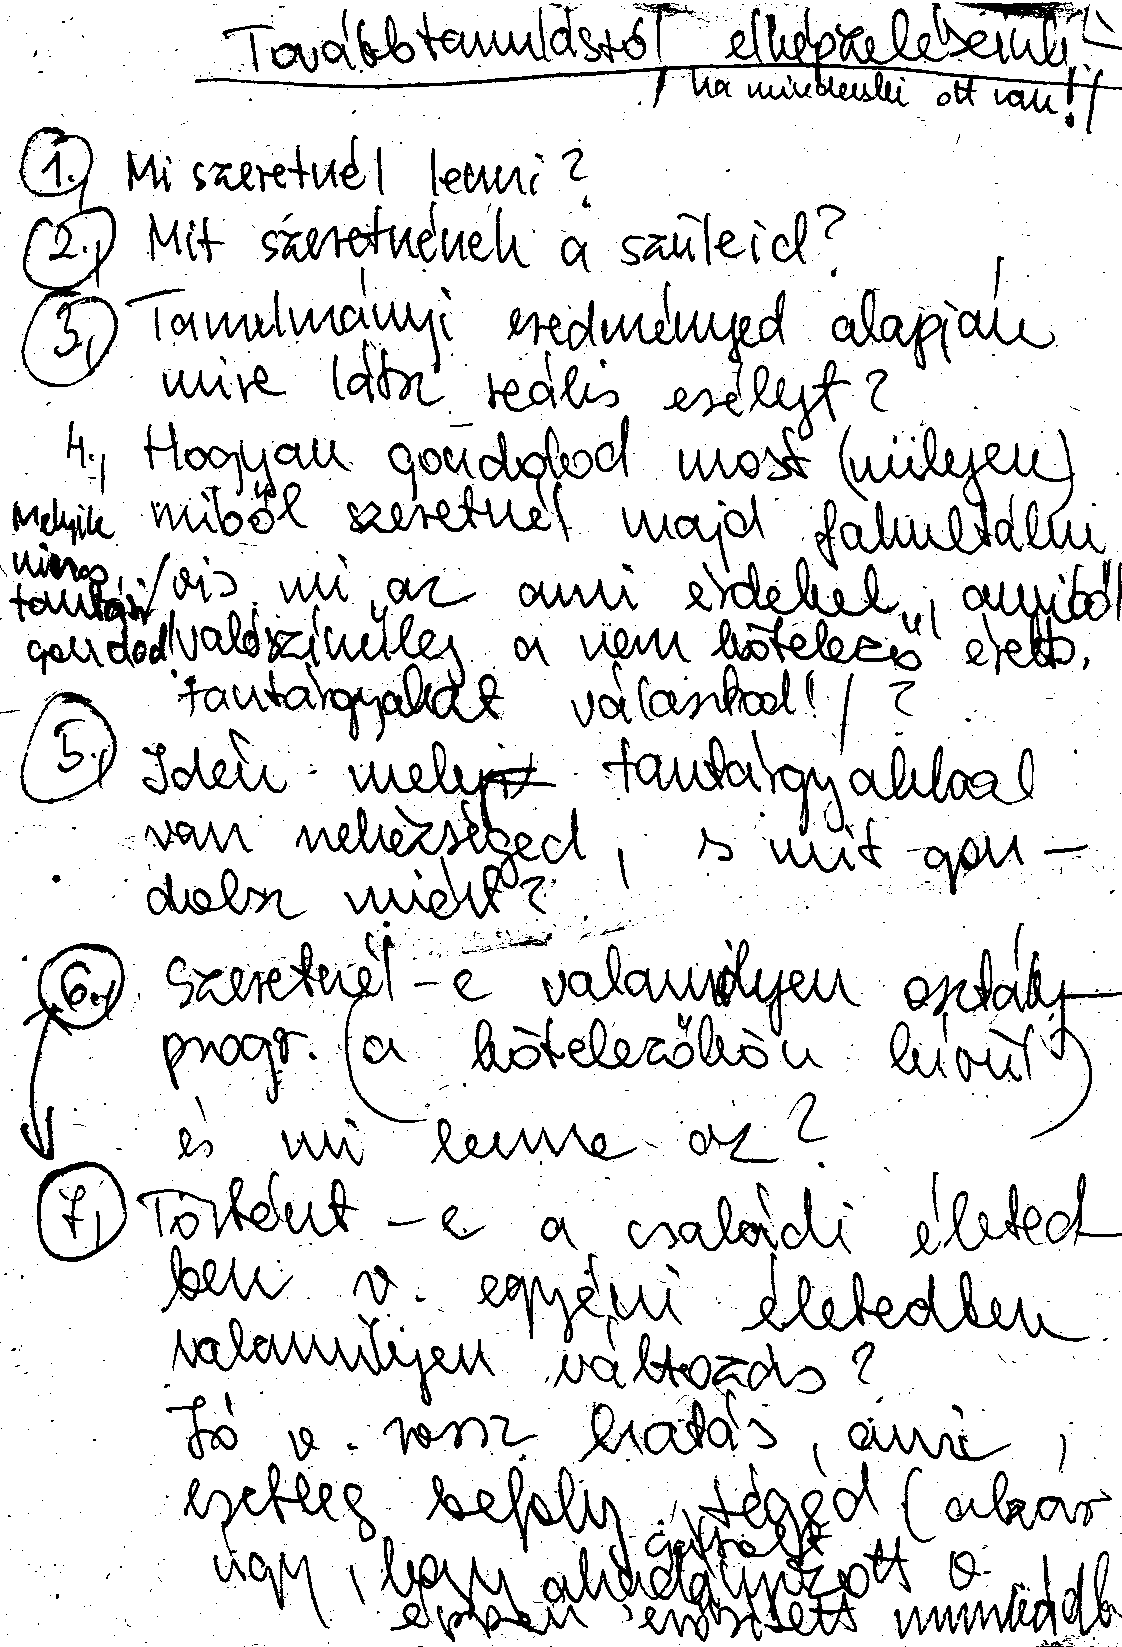 Továbbtanulásról elképzeléseink
/ ha mindenki ott van! /
1., Mi szeretnél lenni?
2., Mit szeretnének a szüleid?
3., Tanulmányi eredményed alapján
mire látsz reális esélyt?
4., Hogyan gondolod most (milyen)
miből szeretnél majd fakultálni
/vis. mi az ami érdekel, amiből
valószínűleg a nem kötelező éretts.
tantárgyakat választod! / ?
Melyik
tantárgy
5., Idén mely tantárgyakkal
van nehézséged, s mit gon-
dolsz miért?
6., Szeretnél-e valamilyen osztály-
progr. (a kötelezőkön kívül)
és mi lenne az?
7., Történt-e a családi életed
ben v. egyéni életedben
valamilyen változás?
Jó v. rossz hatás, ami,
esetleg befoly. téged (akár
úgy, hogy akadályozott v.
gátolt
éppen erősített munkádb